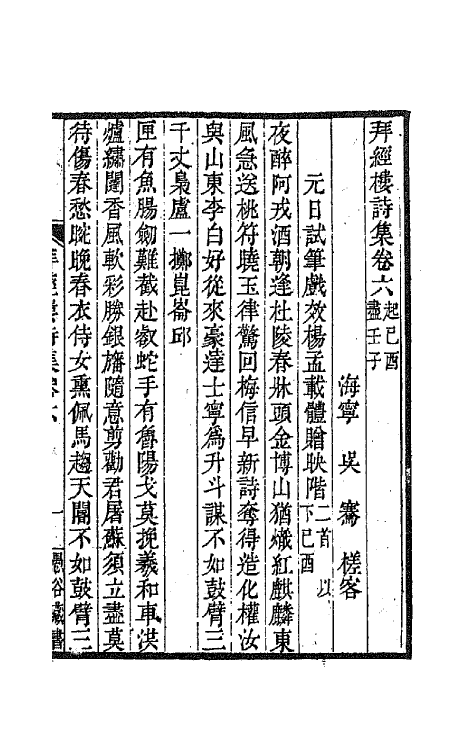 拜經樓詩集卷六起己酉盡壬子
海寧 吳 騫 槎客
元日試筆戲效楊孟載體贈映階二首 以下己酉
夜醉阿戎酒朝逢杜陵春牀頭金博山猶熾紅麒麟東
風急送桃符曉玉律驚回梅信早新詩奪得造化權汝
與山東李白好從來豪達士寧爲升斗謀不如鼓臂三
千丈梟盧一擲崑崙邱
匣有魚腸劒難截赴壑蛇手有魯陽戈莫挽羲和車洪
爐繡闥香風軟彩勝銀旛隨意剪勸君屠蘇須立盡莫
待傷春愁晼晚春衣侍女熏佩馬趨天閽不如鼓臂三
拜經樓詩集卷六 一 愚谷叢書